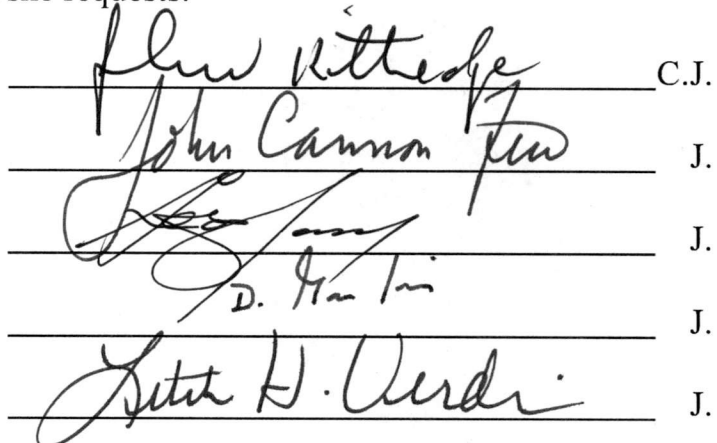 she requests.
John Kittredge C.J.
John Cannon Few J.
J.
D. J.
Letitia H. Verdin J.